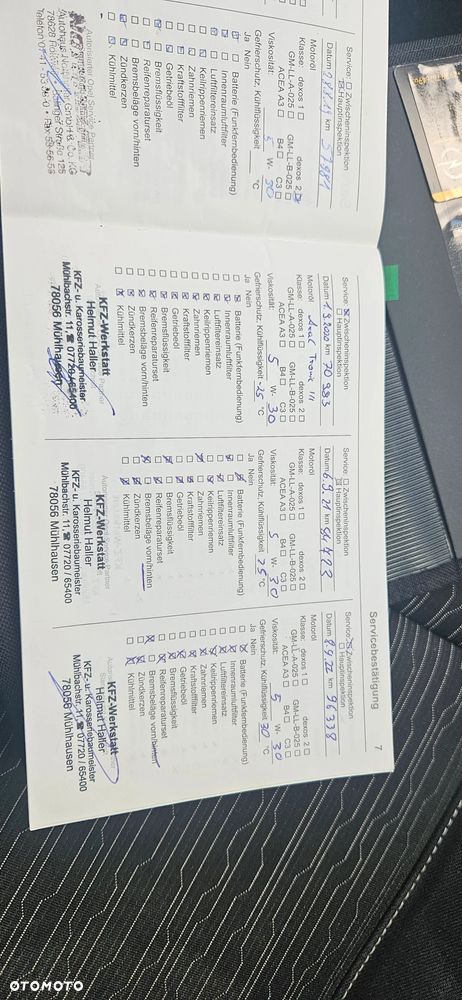 Service: ☐ Zwischeninspektion
☒ Hauptinspektion
Datum km 57981
Motoröl
Klasse: dexos 1 ☐ dexos 2
GM-LL-A-025 ☐ GM-LL-B-025 ☐
ACEA A3 ☐ B4 ☐ C3 ☐
Viskosität: 5 W- 30
Gefrierschutz, Kühlflüssigkeit °C
Ja Nein
Batterie (Funkfernbedienung)
Innenraumluftfilter
Luftfiltereinsatz
Keilrippenriemen
Zahnriemen
Kraftstofffilter
Getriebeöl
Bremsflüssigkeit
Reifenreparaturset
Bremsbeläge vorn/hinten
Zündkerzen
Kühlmittel
Autorisierter Opel Service Partner
Service: ☒ Zwischeninspektion
☐ Hauptinspektion
Datum km 70 983
Motoröl
Klasse: dexos 1 ☐ dexos 2 ☐
GM-LL-A-025 ☐ GM-LL-B-025 ☐
ACEA A3 ☐ B4 ☐ C3 ☐
Viskosität: 5 W- 30
Gefrierschutz, Kühlflüssigkeit -25 °C
Ja Nein
Batterie (Funkfernbedienung)
Innenraumluftfilter
Luftfiltereinsatz
Keilrippenriemen
Zahnriemen
Kraftstofffilter
Getriebeöl
Bremsflüssigkeit
Reifenreparaturset
Bremsbeläge vorn/hinten
Zündkerzen
Kühlmittel
KFZ-Werkstatt
Helmut Haller
KFZ- u. Karosseriebaumeister
Mühlbachstr. 11, ☎ 07720 / 65400
78056 Mühlhausen
Service: ☐ Zwischeninspektion
Hauptinspektion
Datum 6.9.21 km 84 423
Motoröl
Klasse: dexos 1 ☐ dexos 2 ☐
GM-LL-A-025 ☐ GM-LL-B-025 ☐
ACEA A3 ☐ B4 ☐ C3 ☐
Viskosität: 5 W- 30
Gefrierschutz, Kühlflüssigkeit 25 °C
Ja Nein
Batterie (Funkfernbedienung)
Innenraumluftfilter
Luftfiltereinsatz
Keilrippenriemen
Zahnriemen
Kraftstofffilter
Getriebeöl
Bremsflüssigkeit
Reifenreparaturset
Bremsbeläge vorn/hinten
Zündkerzen
Kühlmittel
KFZ-Werkstatt
Helmut Haller
KFZ- u. Karosseriebaumeister
Mühlbachstr. 11, ☎ 07720 / 65400
78056 Mühlhausen
Servicebestätigung 7
Service: ☒ Zwischeninspektion
☐ Hauptinspektion
Datum 8.9.22 km 96338
Motoröl
Klasse: dexos 1 ☐ dexos 2 ☐
GM-LL-A-025 ☐ GM-LL-B-025 ☐
ACEA A3 ☐ B4 ☐ C3 ☐
Viskosität: 5 W- 30
Gefrierschutz, Kühlflüssigkeit 30 °C
Ja Nein
Batterie (Funkfernbedienung)
Innenraumluftfilter
Luftfiltereinsatz
Keilrippenriemen
Zahnriemen
Kraftstofffilter
Getriebeöl
Bremsflüssigkeit
Reifenreparaturset
Bremsbeläge vorn/hinten
Zündkerzen
Kühlmittel
KFZ-Werkstatt
Helmut Haller
KFZ- u. Karosseriebaumeister
Mühlbachstr. 11, ☎ 07720 / 65400
78056 Mühlhausen
OTOMOTO